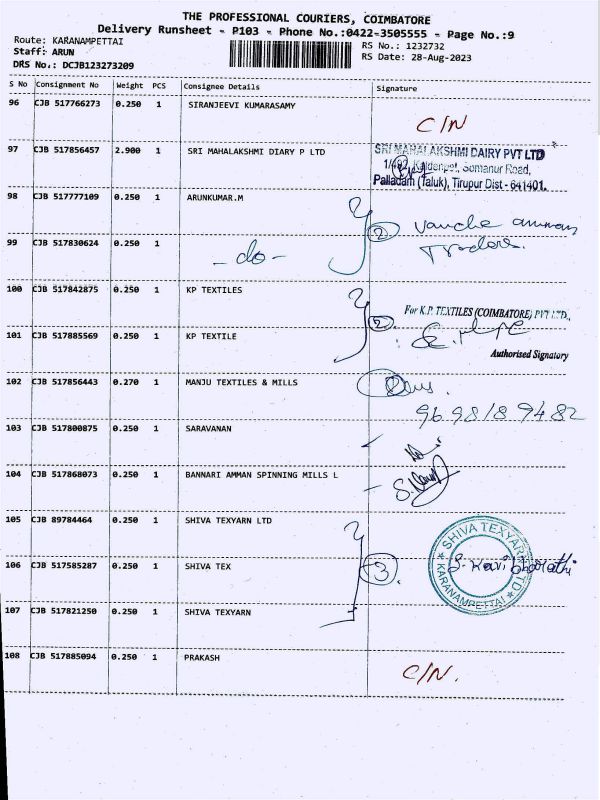 THE PROFESSIONAL COURIERS, COIMBATORE
Delivery Runsheet - P103 - Phone No.:0422-3505555 - Page No.:9
Route: KARANAMPETTAI
RS No.: 1232732
Staff: ARUN
RS Date: 28-Aug-2023
DRS No.: DCJB123273209
S No Consignment No Weight PCS Consignee Details Signature
96 CJB 517766273 0.250 1 SIRANJEEVI KUMARASAMY
C/N
97 CJB 517856457 2.900 1 SRI MAHALAKSHMI DIARY P LTD
SRI MAHALAKSHMI DAIRY PVT LTD
Kaldenpet, Somanur Road,
Palladam (Taluk), Tirupur Dist - 641401.
98 CJB 517777109 0.250 1 ARUNKUMAR.M
2 amman
Traders.
99 CJB 517830624 0.250 1 -do-
100 CJB 517842875 0.250 1 KP TEXTILES
2
For K.P. TEXTILES (COIMBATORE) PVT LTD.,
101 CJB 517885569 0.250 1 KP TEXTILE
Authorised Signatory
102 CJB 517856443 0.270 1 MANJU TEXTILES & MILLS
9698189482
103 CJB 517800875 0.250 1 SARAVANAN
104 CJB 517868073 0.250 1 BANNARI AMMAN SPINNING MILLS L
105 CJB 89784464 0.250 1 SHIVA TEXYARN LTD
106 CJB 517585287 0.250 1 SHIVA TEX
3.
SHIVA TEXYARN LTD
KARANAMPETTAI
S. Kavi bharathi
107 CJB 517821250 0.250 1 SHIVA TEXYARN
108 CJB 517885094 0.250 1 PRAKASH
C/N.